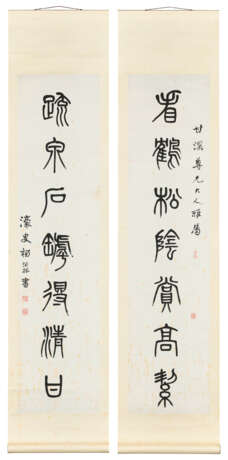 尊兄大人雅屬
看鶴松陰賞高絜
疏泉石罅得清甘
濠叟楊沂孫書